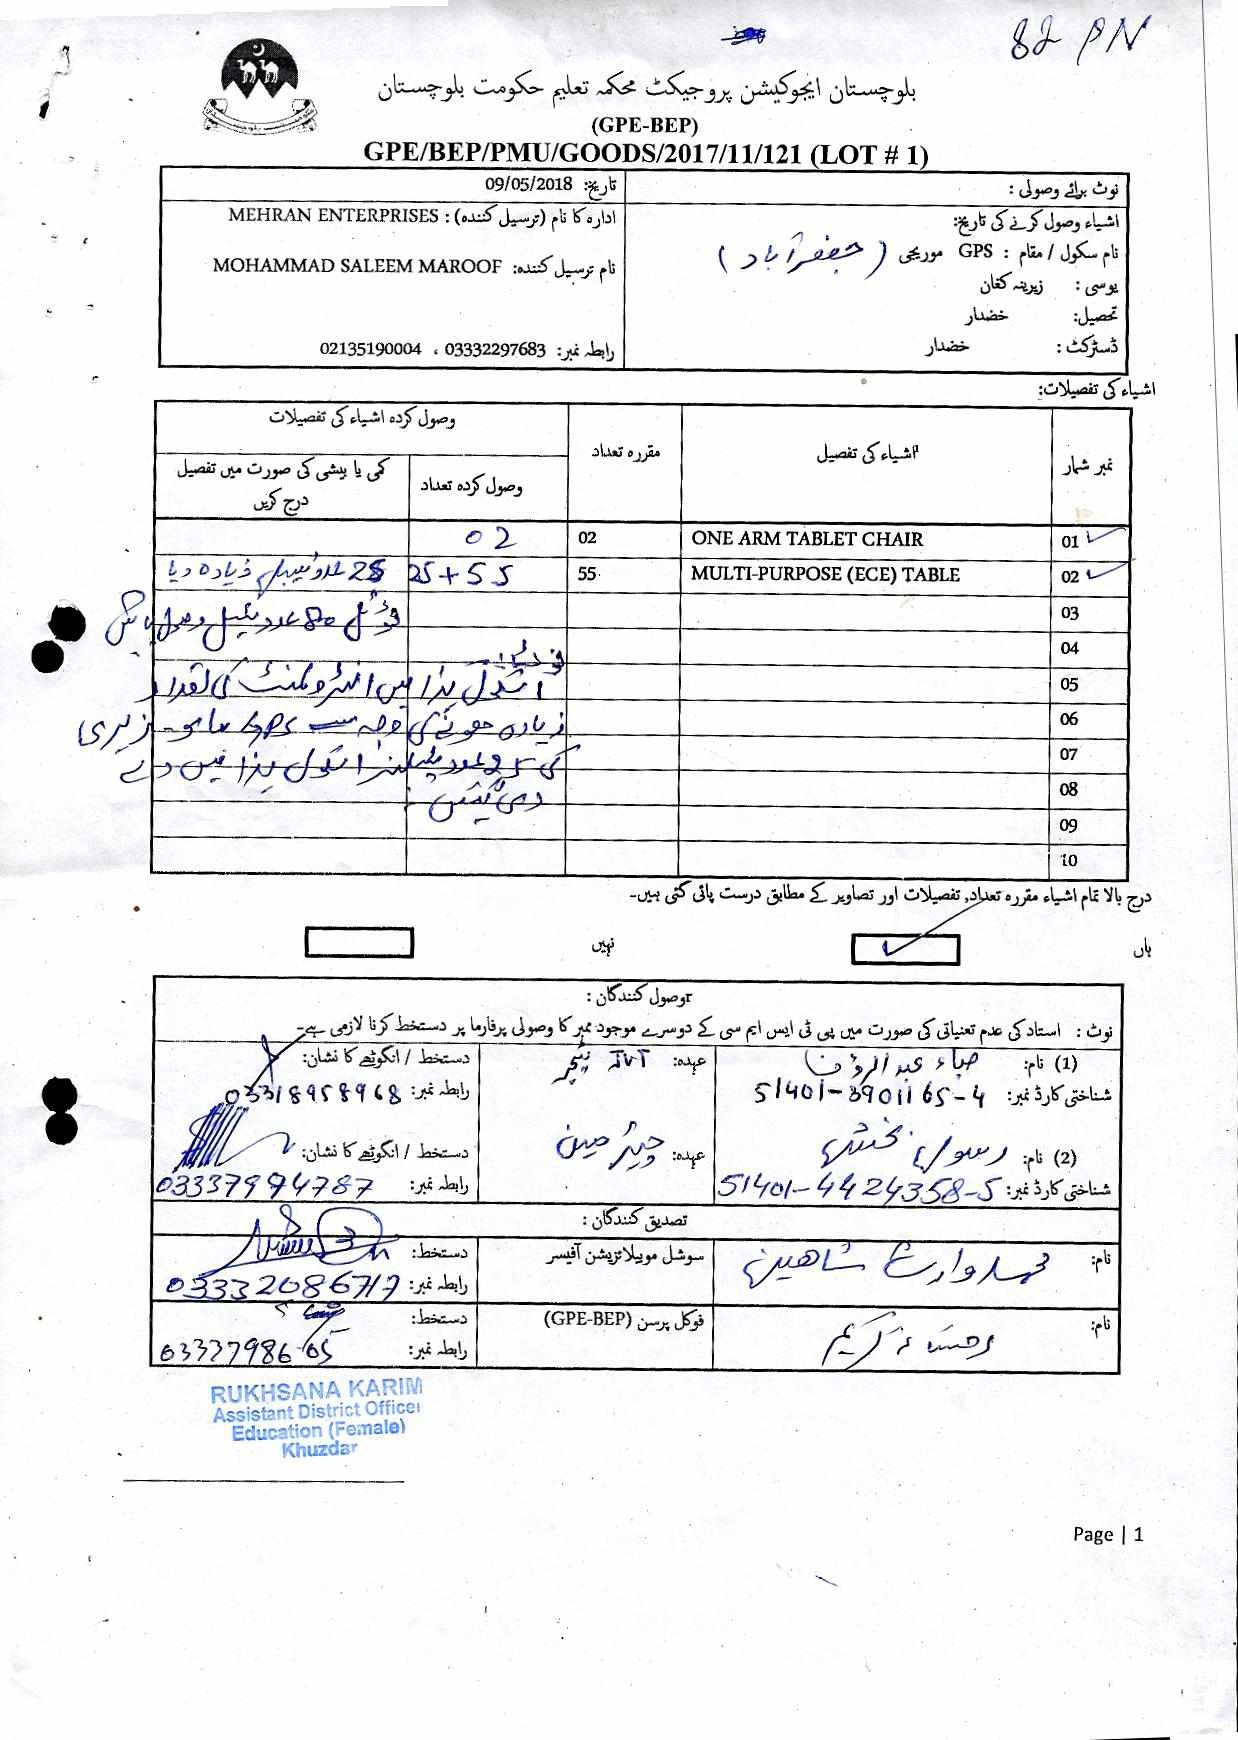 82 PN
بلوچستان ایجوکیشن پروجیکٹ محکمہ تعلیم حکومت بلوچستان
(GPE-BEP)
GPE/BEP/PMU/GOODS/2017/11/121 (LOT # 1)
نوٹ برائے وصولی :
تاریخ: 09/05/2018
اشیاء وصول کرنے کی تاریخ:
ادارہ کا نام (ترسیل کنندہ) : MEHRAN ENTERPRISES
نام سکول / مقام : GPS موریجی (جعفرآباد)
نام ترسیل کنندہ: MOHAMMAD SALEEM MAROOF
یوسی : زیرینہ کفان
تحصیل: خضدار
ڈسٹرکٹ : خضدار
رابطہ نمبر: 03332297683 ، 02135190004
اشیاء کی تفصیلات:
نمبر شمار
اشیاء کی تفصیل
مقررہ تعداد
وصول کردہ اشیاء کی تفصیلات
وصول کردہ تعداد
کمی یا بیشی کی صورت میں تفصیل درج کریں
01 ONE ARM TABLET CHAIR 02 02
02 MULTI-PURPOSE (ECE) TABLE 55 25+55 25 عدد ٹیبل زیادہ دیا
03 ٹوٹل 80 عدد ٹیبل وصول
04
05 اسکول ہذا میں کی تعداد
06 زیادہ ہونے کی وجہ سے GPS زہری
07 کی 25 عدد اسکول ہذا میں دے
08 دی گئیں
09
10
درج بالا تمام اشیاء مقررہ تعداد, تفصیلات اور تصاویر کے مطابق درست پائی گئی ہیں۔
ہاں
نہیں
وصول کنندگان :
نوٹ : استاد کی عدم تعنیاتی کی صورت میں پی ٹی ایس ایم سی کے دوسرے موجود ممبر کا وصولی پرفارما پر دستخط کرنا لازمی ہے۔
(1) نام: ضیاء عبدالرؤف
عہدہ: JVT ٹیچر
دستخط / انگوٹھے کا نشان:
شناختی کارڈ نمبر: 51401-3901165-4
رابطہ نمبر: 03318958968
(2) نام: رسول بخش
عہدہ: چیئرمین
دستخط / انگوٹھے کا نشان:
شناختی کارڈ نمبر: 51401-4424358-5
رابطہ نمبر: 03337994787
تصدیق کنندگان :
نام: محمد وارث شاھین
سوشل موبیلائزیشن آفیسر
دستخط:
رابطہ نمبر: 03332086717
نام: رخسانہ کریم
فوکل پرسن (GPE-BEP)
دستخط:
رابطہ نمبر: 03337986105
RUKHSANA KARIM
Assistant District Officer
Education (Female)
Khuzdar
Page | 1